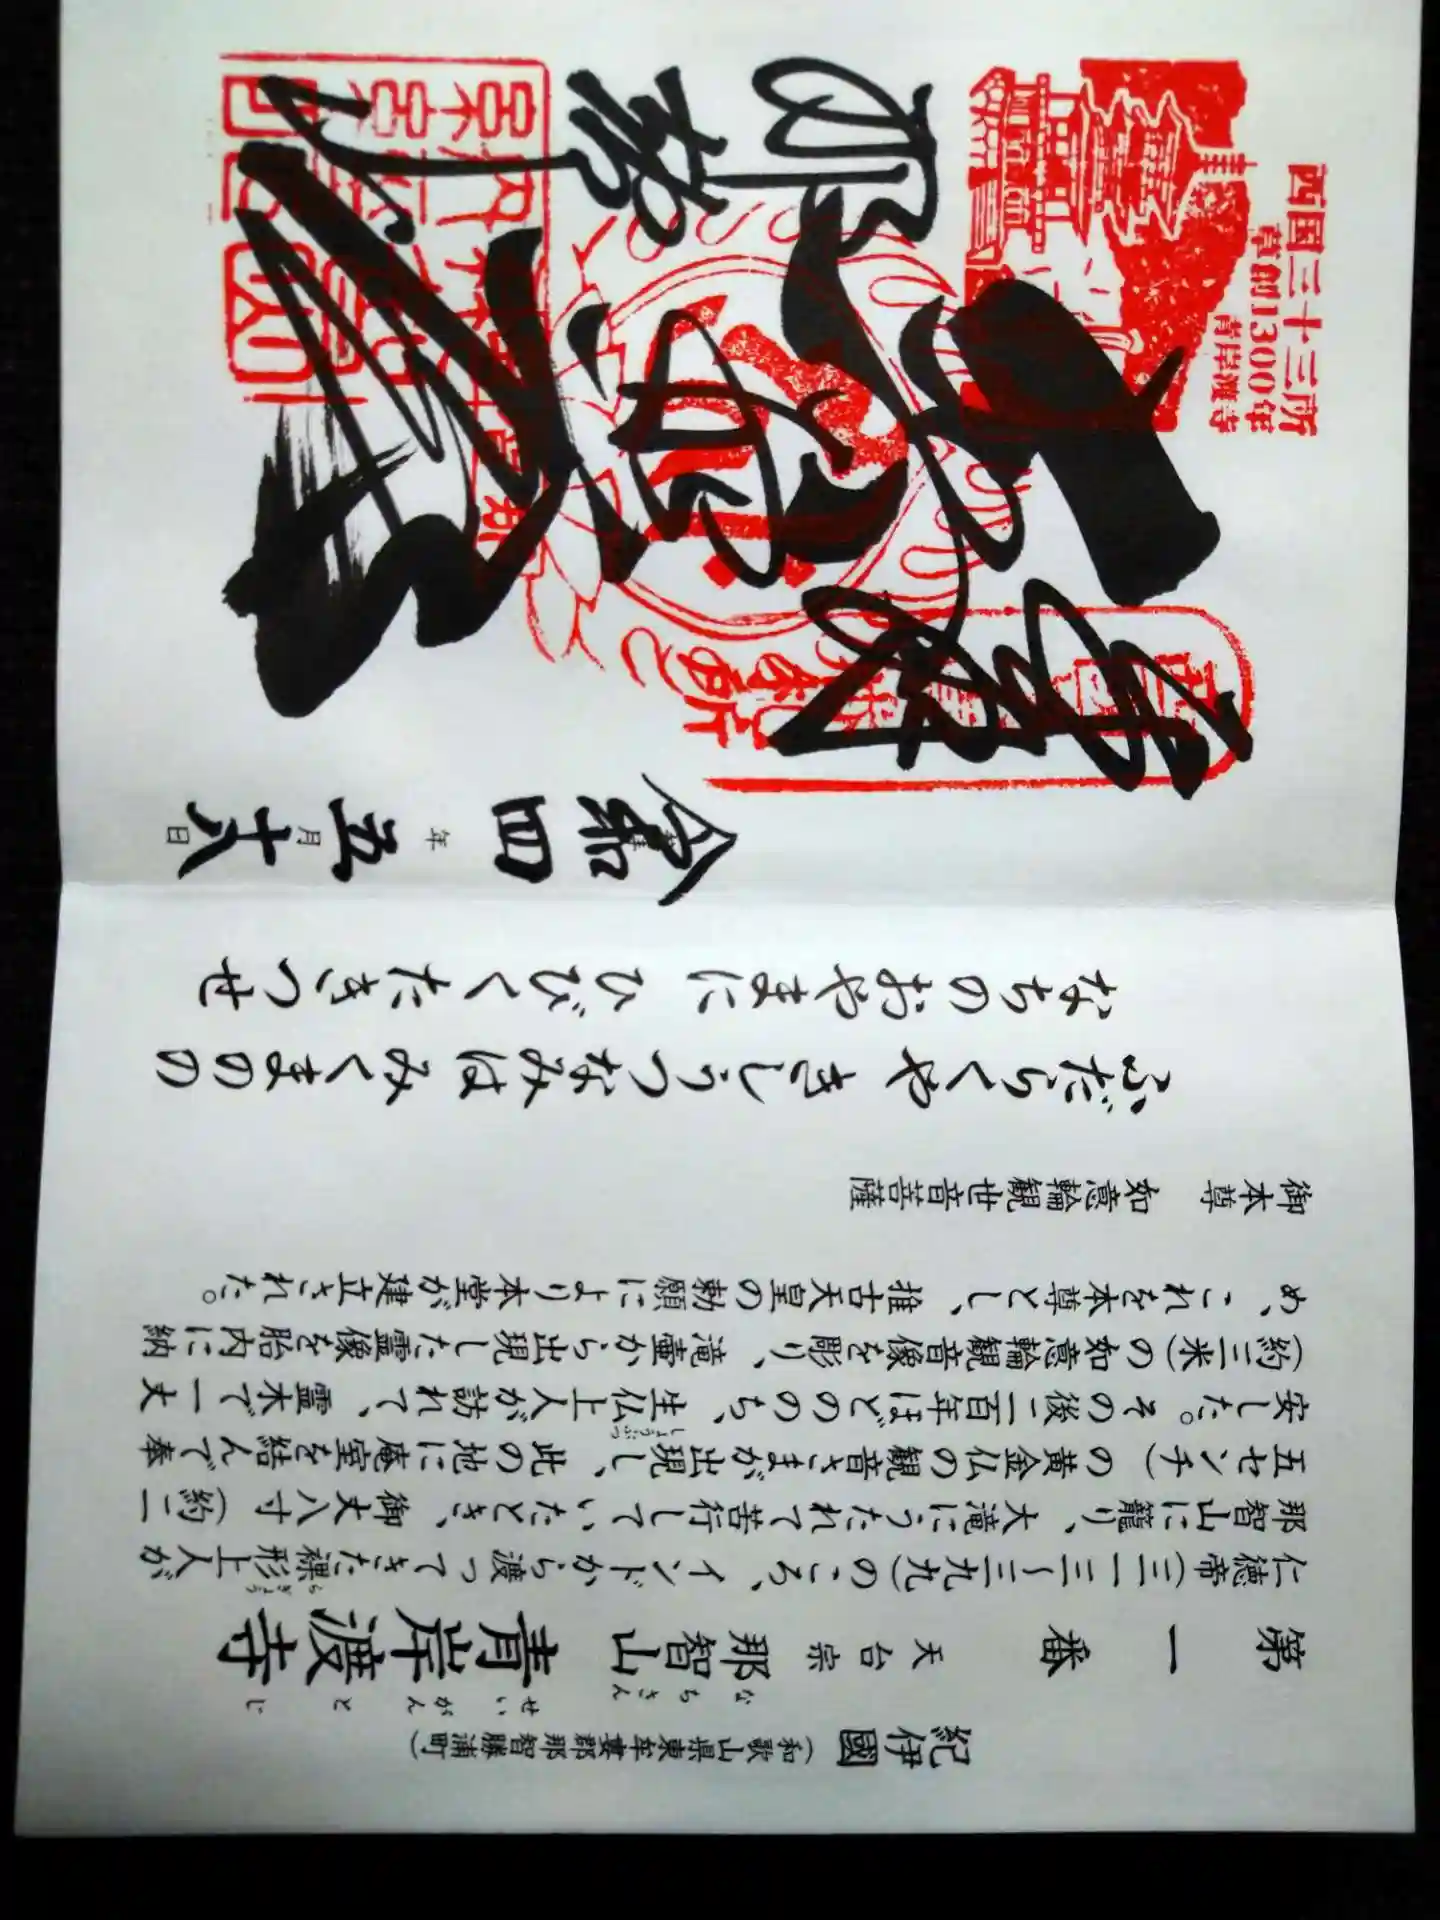 紀伊國(和歌山県東牟婁郡那智勝浦町)
なちさん せいがんとじ
第一番 天台宗 那智山 青岸渡寺
らぎょう
仁徳帝(三一三~三九九)のころ、インドから渡ってきた裸形上人が
那智山に籠り、大滝にうたれて苦行していたとき、御丈八寸(約二
五センチ)の黄金仏の観音さまが出現し、此の地に庵室を結んで奉
しょうぶつ
安した。その後二百年ほどののち、生仏上人が訪れて、霊木で一丈
(約三米)の如意輪観音像を彫り、滝壷から出現した霊像を胎内に納
め、これを本尊とし、推古天皇の勅願により本堂が建立された。
御本尊 如意輪観世音菩薩
ふだらくや きしうつなみは みくまのの
なちのおやまに ひびくたきつせ
令和四年五月十八日
奉拝
西国三十三所
草創1300年
青岸渡寺